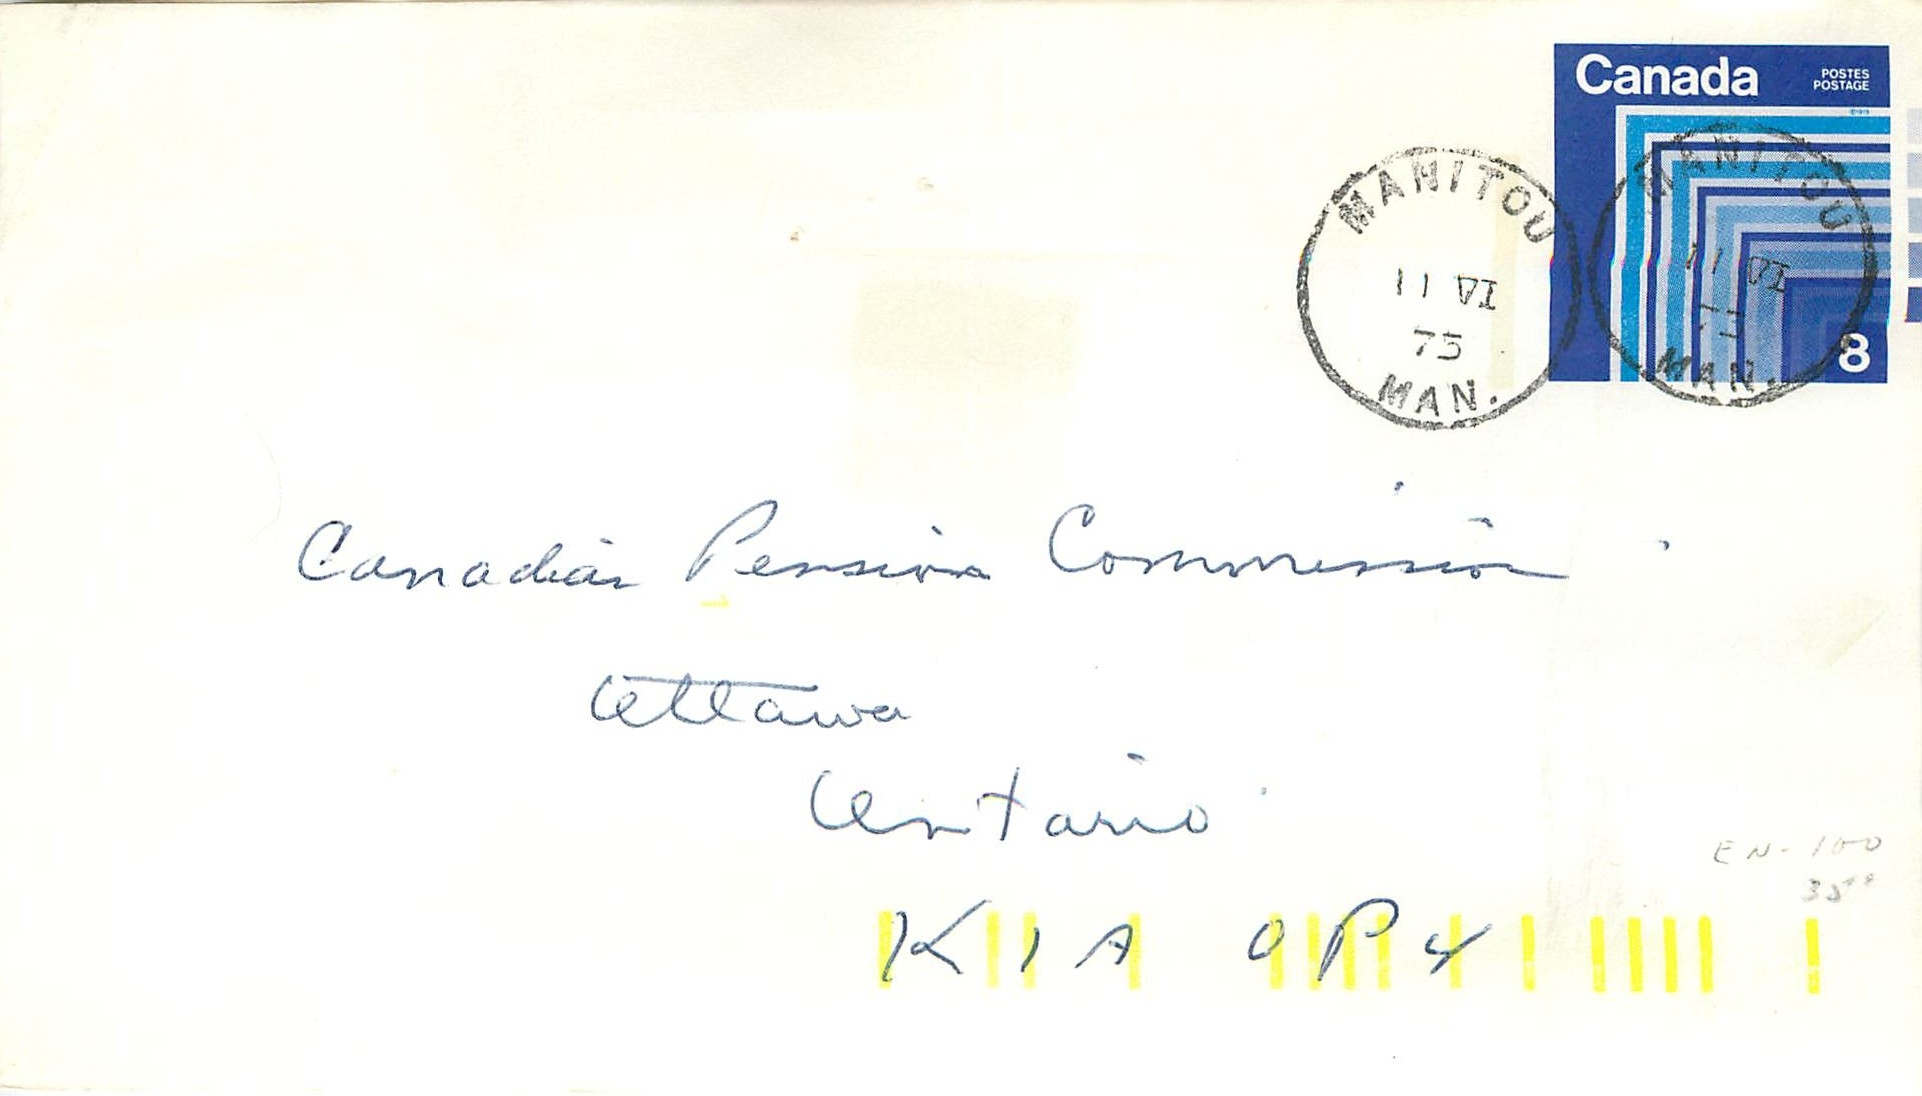 Canada POSTES
POSTAGE
MANITOU
11 VI
75
MAN.
MANITOU
11 VI
75
MAN.
8
Canadian Pension Commission
Ottawa
Ontario
K1A 0P4
EN-100
35°°